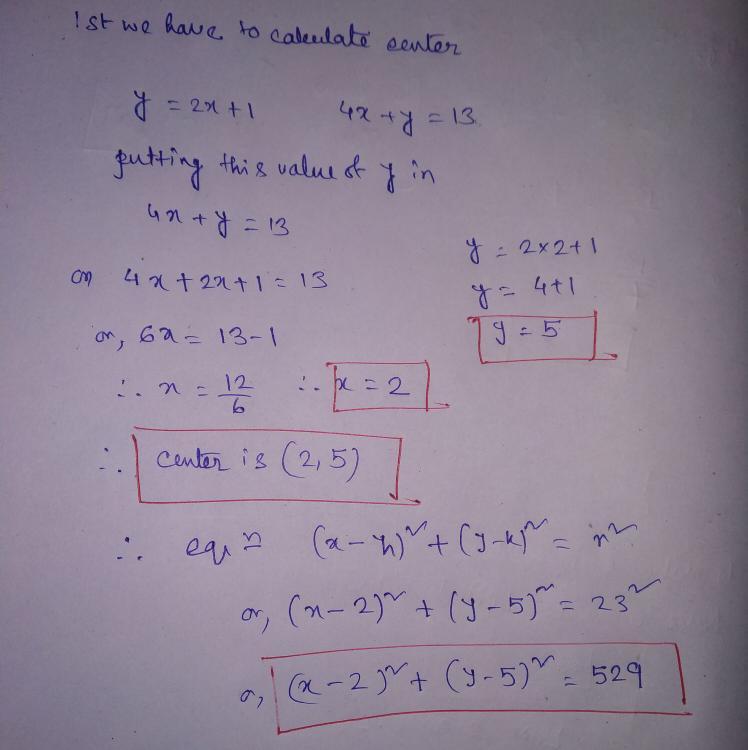 1st we have to calculate center
y = 2x+1 4x+y = 13
putting this value of y in
4x + y = 13
or 4x+2x+1 = 13
y = 2×2+1
y = 4+1
or, 6x = 13-1
y = 5
∴ x = 12/6 ∴ x = 2
∴ center is (2,5)
∴ eqn (x-h)² + (y-k)² = r²
or, (x-2)² + (y-5)² = 23²
or, (x-2)² + (y-5)² = 529